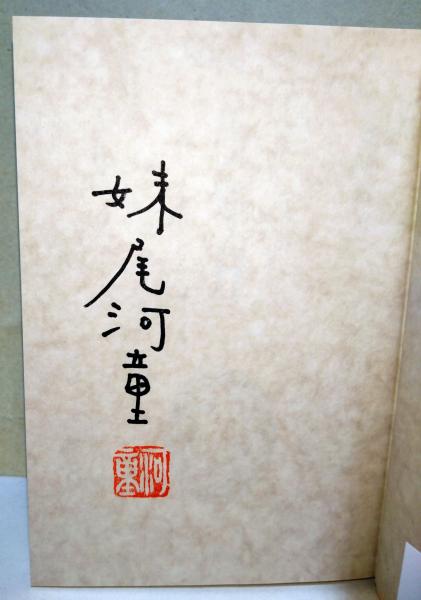 妹尾河童
河童